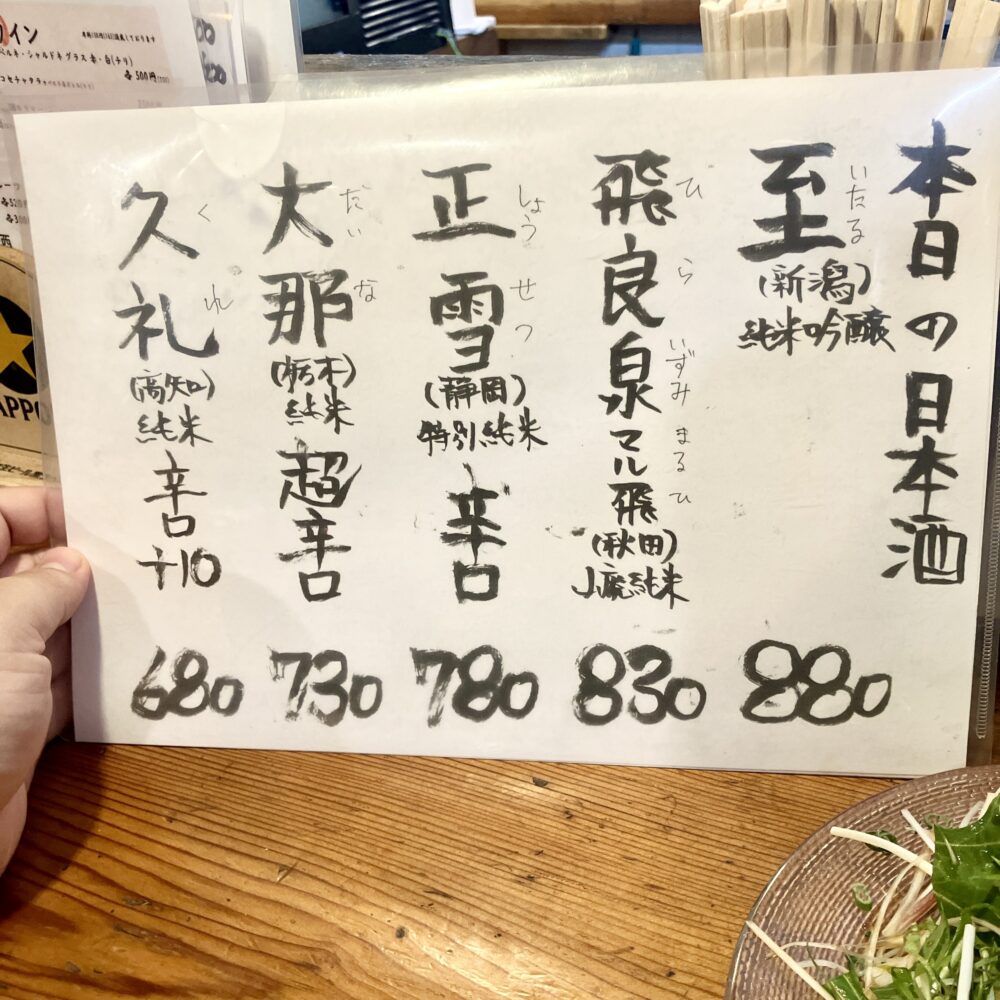 本日の日本酒
至
いたる
(新潟)
純米吟醸
880
飛良泉マル飛
ひらいずみまるひ
(秋田)
山廃純米
830
正雪
しょうせつ
(静岡)
特別純米
辛口
780
大那
だいな
(栃木)
純米
超辛口
730
久礼
くれ
(高知)
純米
辛口
+10
680
イン
500円